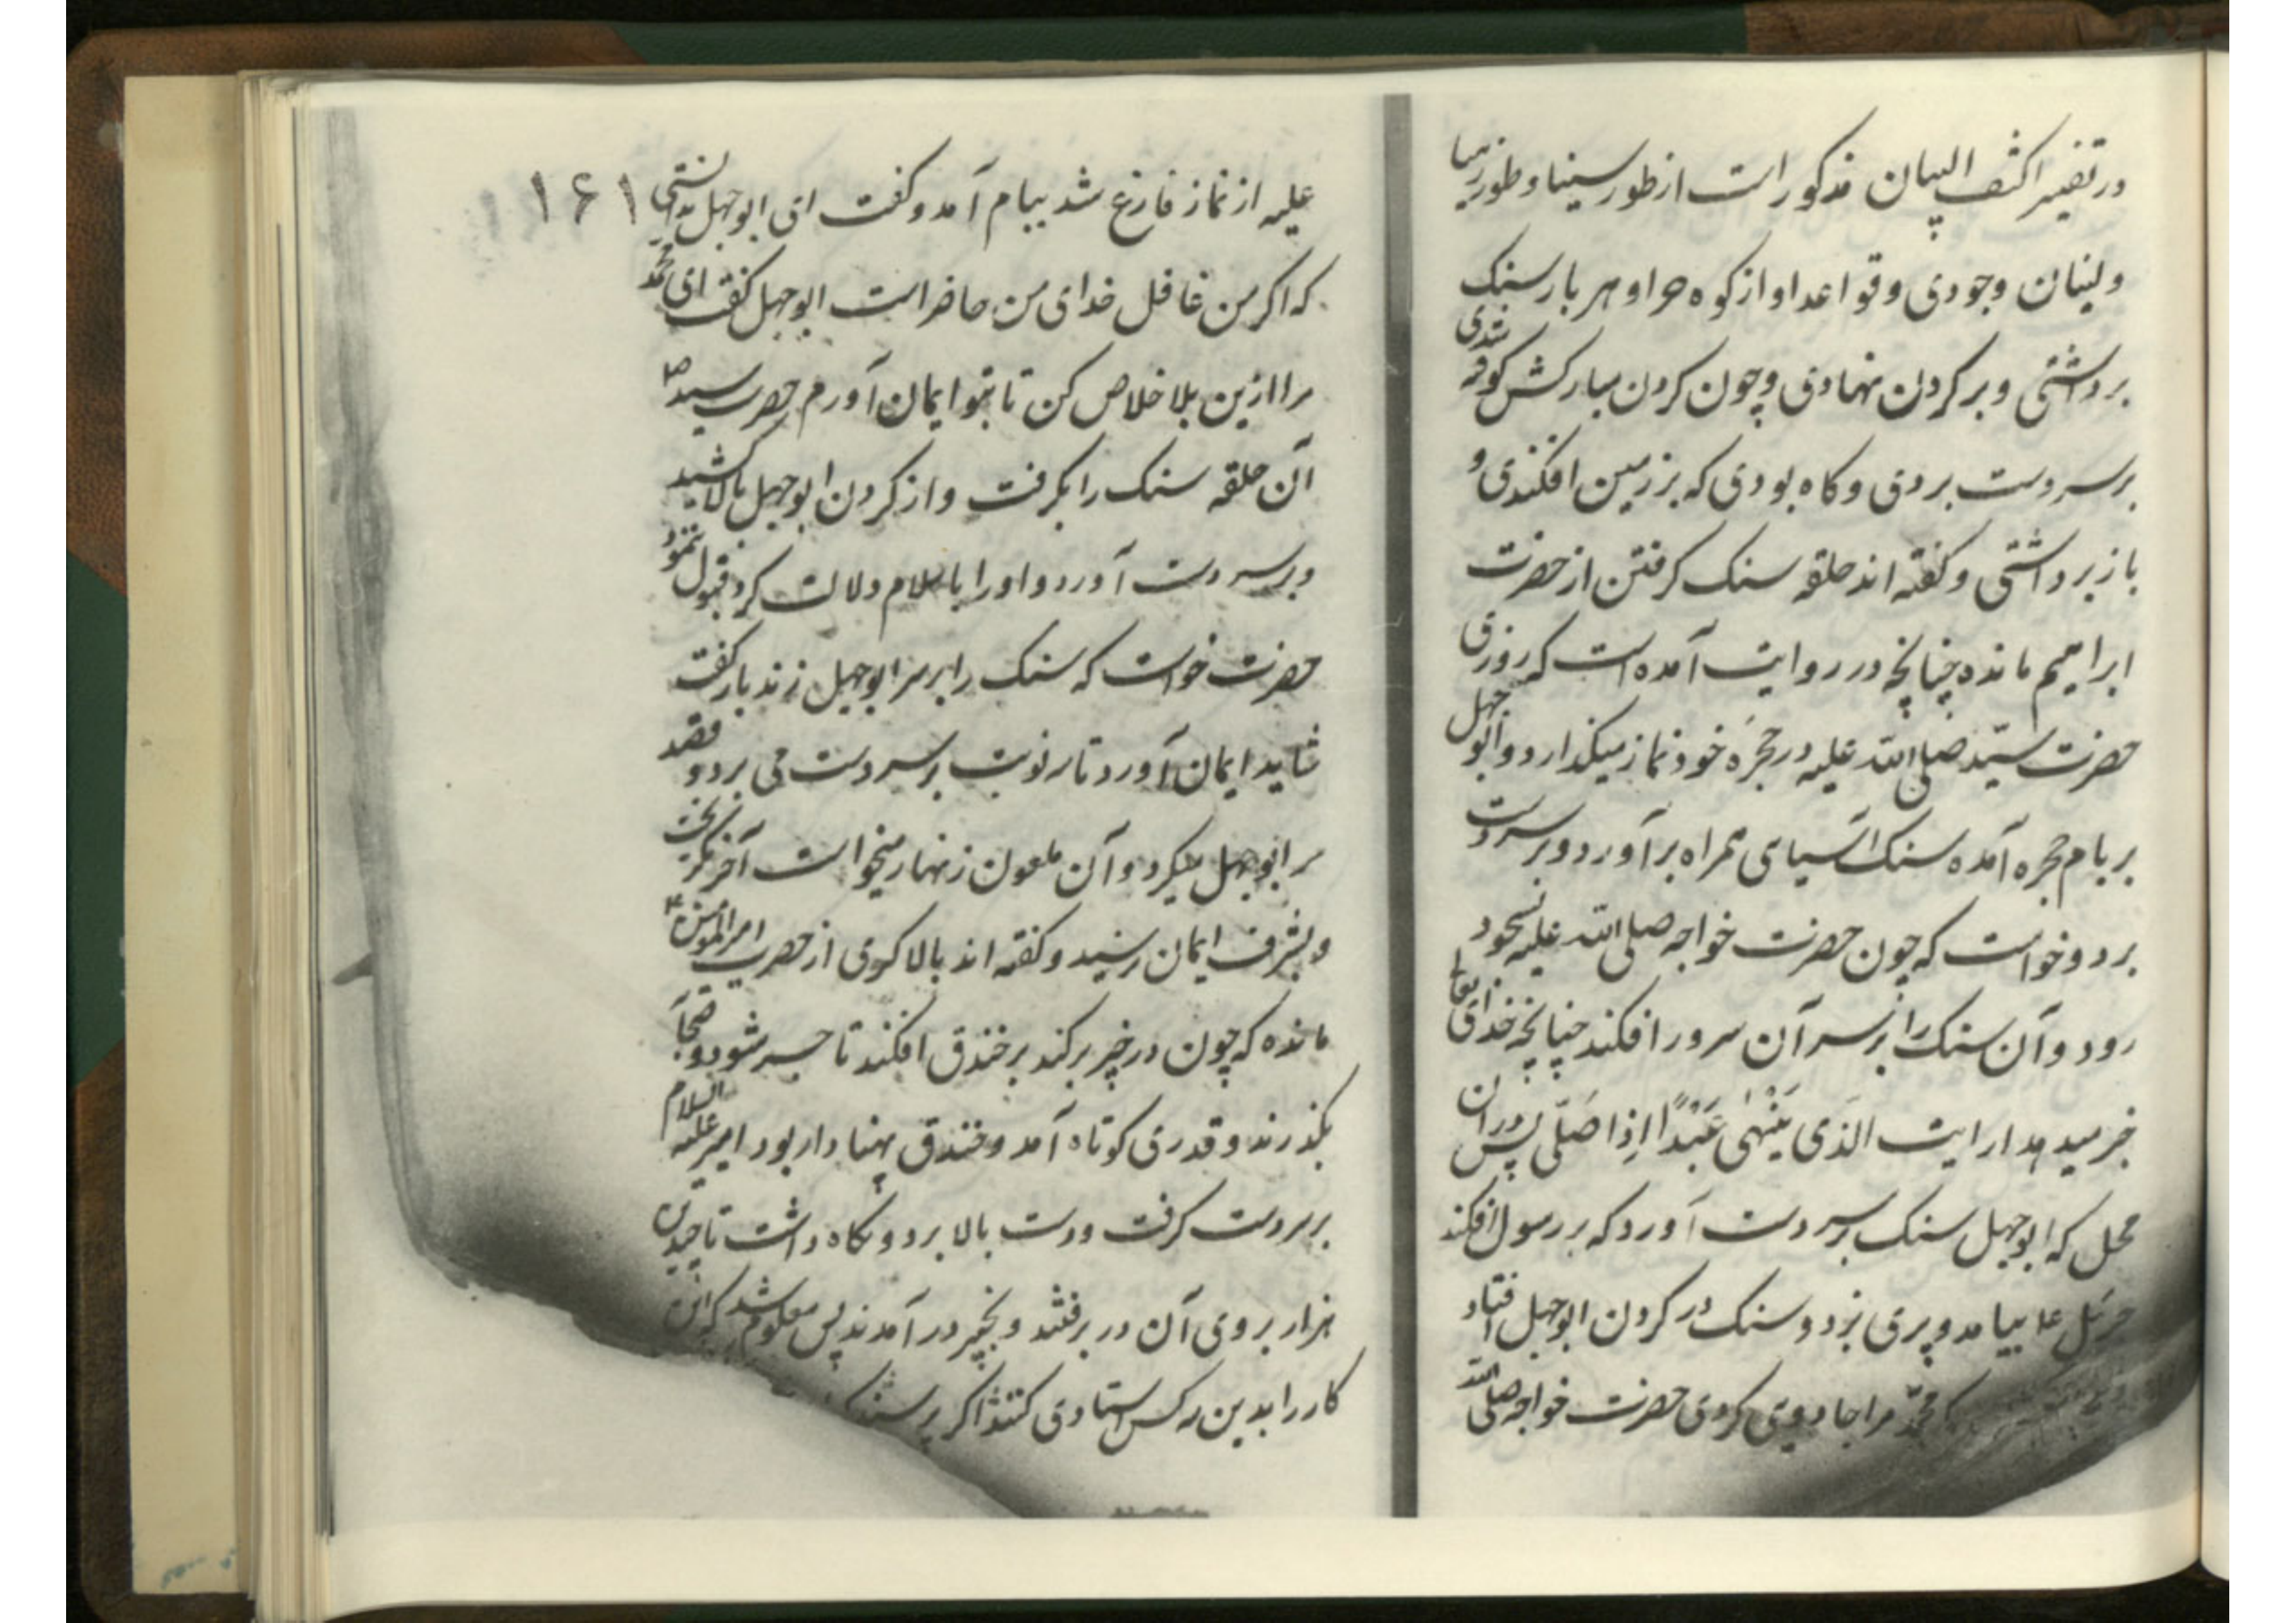 در تفسیر اکشف البیان مذکور است از طور سینا و طور زیتا
و لبنان و جودی و قواعد او از کوه حرا و هر بار سنک
برداشتی و بر کردن نهادی و چون کردن مبارکش کوفته شدی
بر سر دست بردی و کاه بودی که بر زمین افکندی و
باز برداشتی و کفته اند حلقه سنک کرفتن از حضرت
ابراهیم مانده چنانچه در روایت آمده است که روزی
حضرت سیّد صلی الله علیه در حجرهٔ خود نماز میکذارد و ابو جهل
بر بام حجره آمده سنک آسیای همراه برآورد و بر سر دست
برد و خواست که چون حضرت خواجه صلی الله علیه بسجود
رود و آن سنک را بر سر آن سرور افکند چنانچه خدای تعالی
خبر میدهد ارایت الذی یَنْهٰی عَبْدًا اِذا صَلّی پس در ان
محل که ابو جهل سنک بر سر دست آورد که بر رسول افکند
جرئیل ع بیامد و پری بزد و سنک در کردن ابو جهل افتاد
محمّد مرا جادویی کردی حضرت خواجه صلی الله
۱۶۱
علیه از نماز فارغ شد ببام آمد و کفت ای ابو جهل ندانستی
که اکر من غافل خدای من حاضر است ابو جهل کفت ای محمد
مرا ازین بلا خلاص کن تا بتو ایمان آورم حضرت سید ص
آن حلقه سنک را بکرفت و از کردن ابو جهل بالا کشید
و بر سر دست آورد و او را باسلام دلالت کرد قبول ننمود
حضرت خواست که سنک را بر سر ابو جهل زند باز کفت
شاید ایمان آورد تا سه نوبت بر سر دست می برد و قصد
سر ابو جهل میکرد و آن ملعون زنهار میخواست آخر بکریخت
و بشرف ایمان نرسید و کفته اند بالا کوی از حضرت امیر المؤمنین ع
مانده که چون در خیبر برکند بر خندق افکند تا جسر شود و صحابه
بکذرند و قدری کوتاه آمد و خندق پهنا دار بود امیر علیه السلام
بر سر دست کرفت و دست بالا برد و نکاه داشت تا چندین
هزار بر روی آن در برفتند و بخیبر در آمدند پس معلوم شد که این
کار را بدین سه کس استادی کنند اکر پرسند